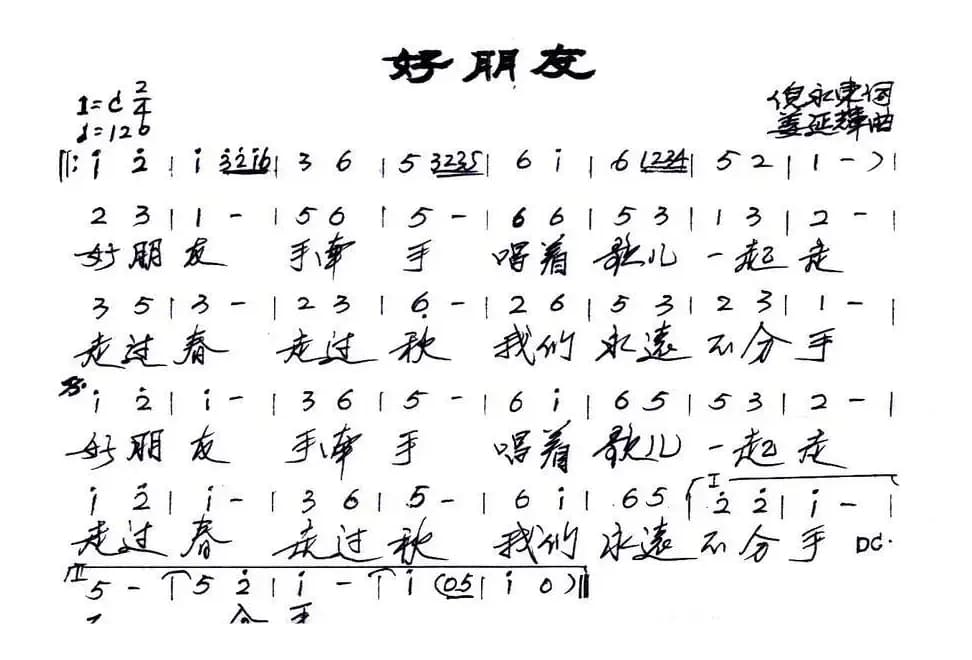 好朋友
1=C 2/4
♩=126
倪永东词
姜延辉曲
‖: i̇ 2̇ | i̇ 3̇2̇i̇6 | 3 6 | 5 3235 | 6 i̇ | 6 1234 | 5 2 | 1 - ) |
2 3 | 1 - | 5 6 | 5 - | 6 6 | 5 3 | 1 3 | 2 - |
好朋友 手牵手 唱着歌儿一起走
3 5 | 3 - | 2 3 | 6̣ - | 2 6 | 5 3 | 2 3 | 1 - |
走过春 走过秋 我们永远不分手
i̇ 2̇ | i̇ - | 3 6 | 5 - | 6 i̇ | 6 5 | 5 3 | 2 - |
好朋友 手牵手 唱着歌儿一起走
i̇ 2̇ | i̇ - | 3 6 | 5 - | 6 i̇ | 6 5 | I 2̇ 2̇ | i̇ - |
走过春 走过秋 我们永远不分手 D.C.
II 5 - | 5 2̇ | i̇ - | i̇ (05 | i̇ 0 ) ‖